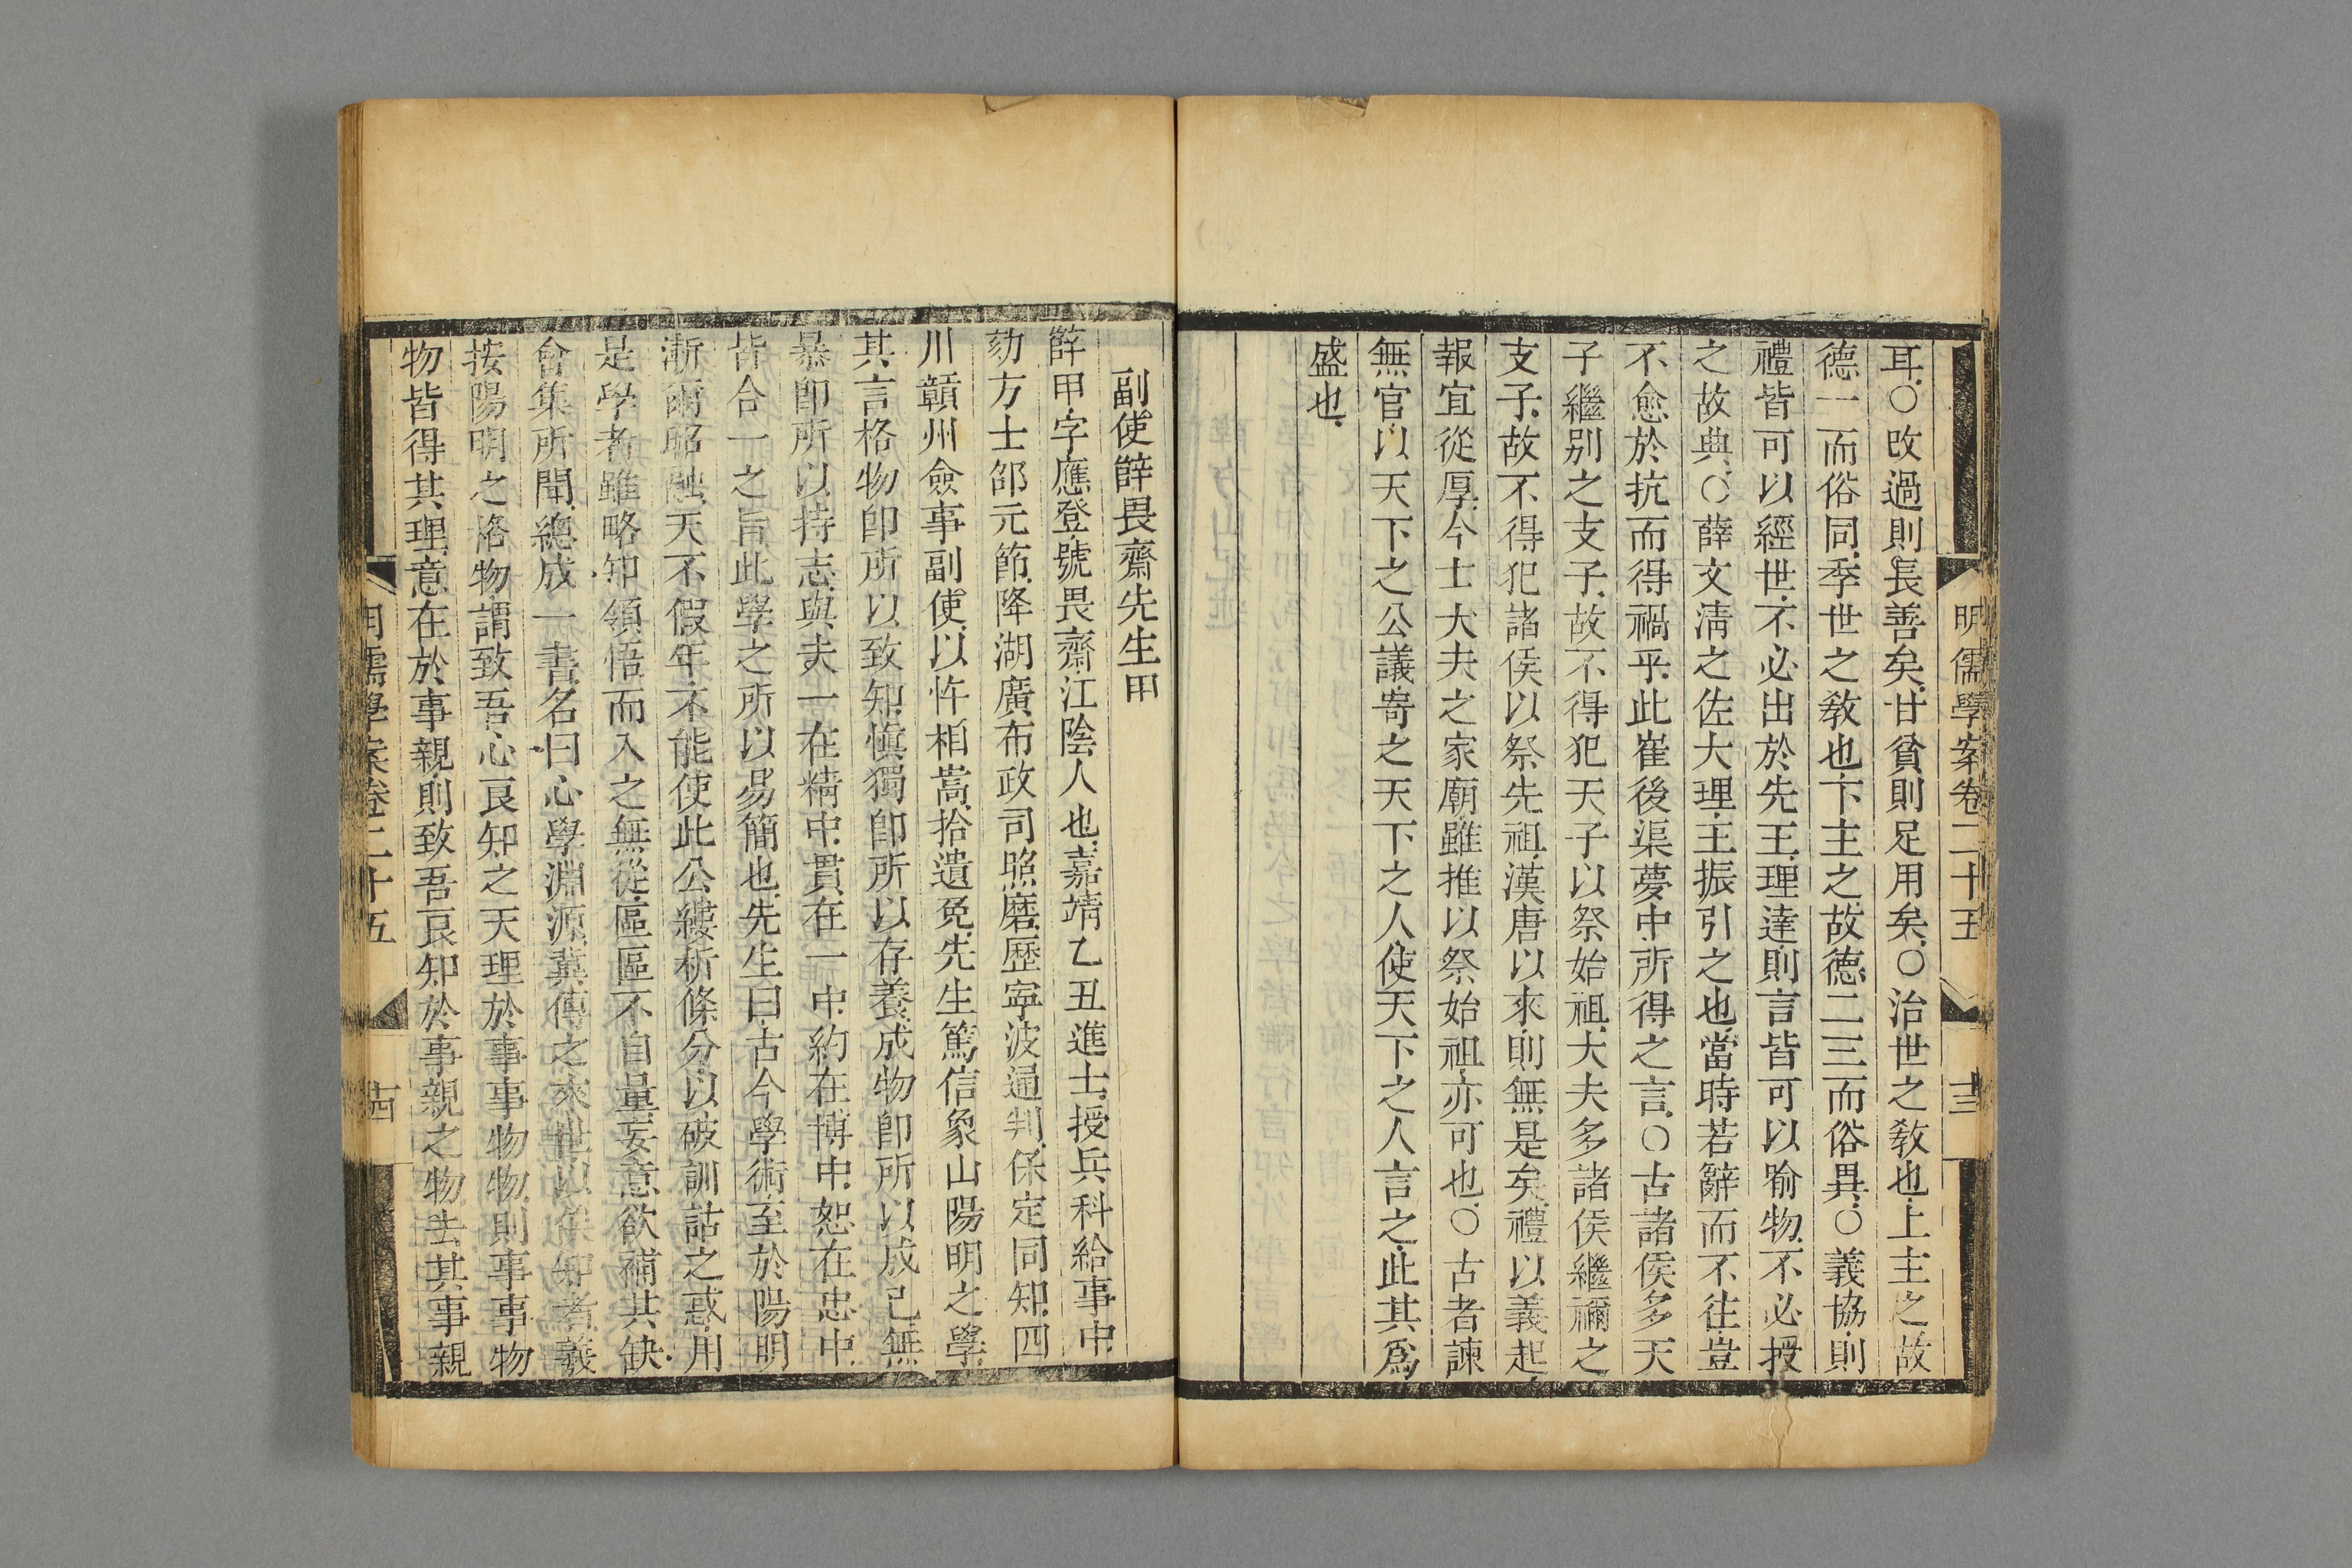 明儒學案卷二十五
十三
耳○改過則長善矣甘貧則足用矣○治世之敎也上主之故
德一而俗同季世之敎也下主之故德二三而俗異○義協則
禮皆可以經世不必出於先王理達則言皆可以喻物不必授
之故典○薛文淸之佐大理王振引之也當時若辭而不往豈
不愈於抗而得禍乎此崔後渠夢中所得之言○古諸侯多天
子繼别之支子故不得犯天子以祭始祖大夫多諸侯繼禰之
支子故不得犯諸侯以祭先祖漢唐以來則無是矣禮以義起
報宜從厚今士大夫之家廟雖推以祭始祖亦可也○古者諫
無官以天下之公議寄之天下之人使天下之人言之此其爲
盛也
副使薛畏齋先生甲
薛甲字應登號畏齋江陰人也嘉靖乙丑進士授兵科給事中
劾方士邵元節降湖廣布政司照磨歷寧波通判保定同知四
川贑州僉事副使以忤相嵩拾遺免先生篤信象山陽明之學
其言格物卽所以致知愼獨卽所以存養成物卽所以成己無
暴卽所以持志與夫一在精中貫在一中約在博中恕在忠中
皆合一之旨此學之所以易簡也先生曰古今學術至於陽明
漸爾昭融天不假年不能使此公縷析條分以破訓詁之惑用
是學者雖略知領悟而入之無從區區不自量妄意欲補其缺
會集所聞總成一書名曰心學淵源冀傳之來世以俟知者羲
按陽明之格物謂致吾心良知之天理於事事物物則事事物
物皆得其理意在於事親則致吾良知於事親之物去其事親
明儒學案卷二十五
十四